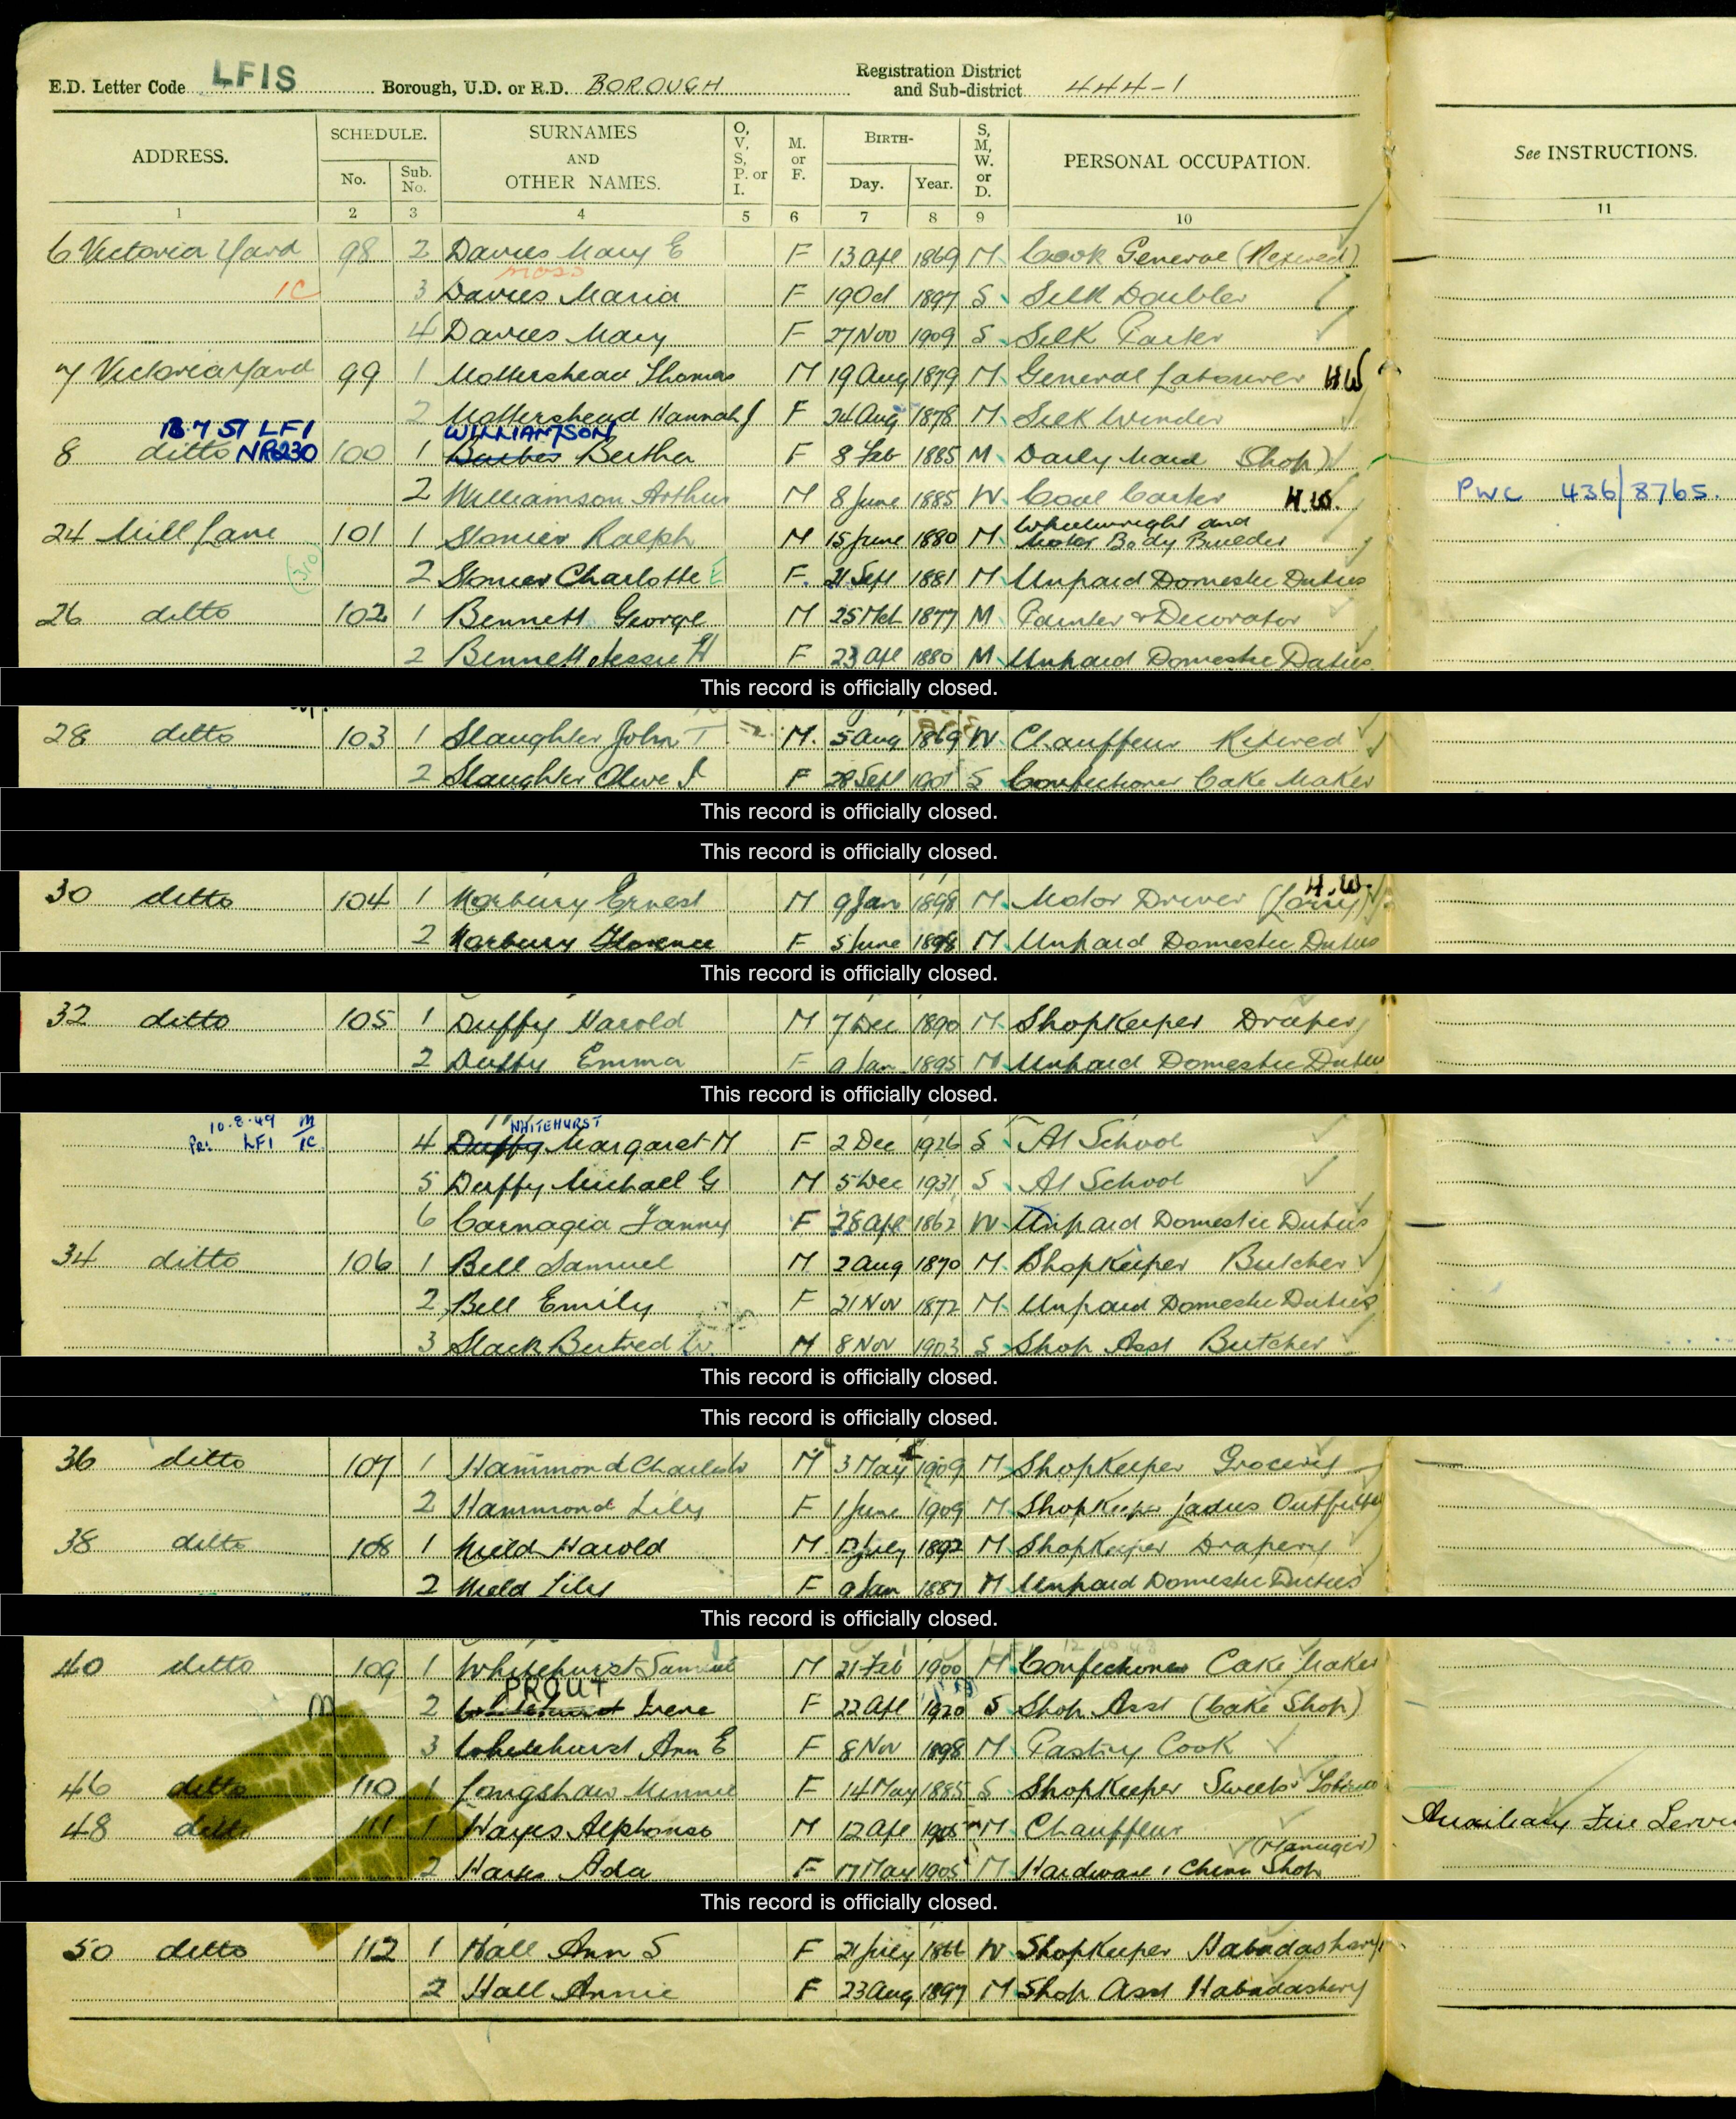 E.D. Letter Code LFIS Borough, U.D. or R.D. BOROUGH Registration District and Sub-district 444-1
ADDRESS. SCHEDULE. No. Sub. No. SURNAMES AND OTHER NAMES. O, V, S, P. or I. M. or F. BIRTH- Day. Year. S, M, W. or D. PERSONAL OCCUPATION. See INSTRUCTIONS.
1 2 3 4 5 6 7 8 9 10 11
6 Victoria Yard 98 2 Davies Mary E F 13 Apl 1869 M Cook General (Retired)
moss
1C 3 Davies Maria F 19 Oct 1897 S Silk Doubler
4 Davies Mary F 27 Nov 1909 S Silk
7 Victoria Yard 99 1 Mottershead Thomas M 19 Aug 1879 M General Labourer HW
2 Mottershead Hannah J F 24 Aug 1878 M Silk Winder
7 51 LFI WILLIAMSON
8 ditto NR230 100 1 Barber Bertha F 8 Feb 1885 M Daily Maid Shop)
2 Williamson Arthur M 8 June 1885 W Coal Carter H.W. PWC 436/8765.
24 Mill Lane 101 1 Stonier Ralph M 15 June 1880 M Wheelwright and Motor Body Builder
310 2 Stonier Charlotte E F 21 Sept 1881 M Unpaid Domestic Duties
26 ditto 102 1 Bennett George M 25 Mch 1877 M Painter & Decorator
2 Bennett Jessie H F 23 Apl 1880 M Unpaid Domestic Duties
This record is officially closed.
28 ditto 103 1 Slaughter John T M 5 Aug 1869 W Chauffeur Retired
2 Slaughter Olive J F 28 Sept 1901 S Confectioner Cake Maker
This record is officially closed.
This record is officially closed.
30 ditto 104 1 Norbury Ernest M 9 Jan 1898 M Motor Driver (Lorry) H.W.
2 Norbury Florence F 5 June 1898 M Unpaid Domestic Duties
This record is officially closed.
32 ditto 105 1 Duffy Harold M 7 Dec 1890 M Shopkeeper Drapery
2 Duffy Emma F 9 Jan 1895 M Unpaid Domestic Duties
This record is officially closed.
10.8.49 M WHITEHURST
PR: LFI 1C 4 Duffy Margaret M F 2 Dec 1926 S At School
5 Duffy Michael G M 5 Dec 1931 S At School
6 Carnagia Fanny F 28 Apl 1862 W Unpaid Domestic Duties
34 ditto 106 1 Bell Samuel M 2 Aug 1870 M Shopkeeper Butcher
2 Bell Emily F 21 Nov 1872 M Unpaid Domestic Duties
3 Slack Bertred W M 8 Nov 1903 S Shop Asst Butcher
This record is officially closed.
This record is officially closed.
36 ditto 107 1 Hammond Charles W M 3 May 1909 M Shopkeeper Grocery
2 Hammond Lily F 1 June 1909 M Shopkeeper Ladies Outfitter
38 ditto 108 1 Nield Harold M 12 July 1892 M Shopkeeper Drapery
2 Nield Lily F 9 Jan 1887 M Unpaid Domestic Duties
This record is officially closed.
40 ditto 109 1 Whitehurst Samuel M 21 Feb 1900 M Confectioner Cake Maker
PROUT
M 2 Whitehurst Irene F 22 Apl 1920 S Shop Asst (Cake Shop)
3 Whitehurst Ann E F 8 Nov 1898 M Pastry Cook
46 ditto 110 1 Longshaw Minnie F 14 May 1885 S Shopkeeper Sweets Tobacco
48 ditto 111 1 Hayes Alphonso M 12 Apl 1905 M Chauffeur Auxiliary Fire Service
(Manager)
2 Hayes Ada F 17 May 1905 M Hardware & China Shop
This record is officially closed.
50 ditto 112 1 Hall Ann S F 21 July 1866 W Shopkeeper Habadashery
2 Hall Annie F 23 Aug 1897 M Shop Asst Habadashery